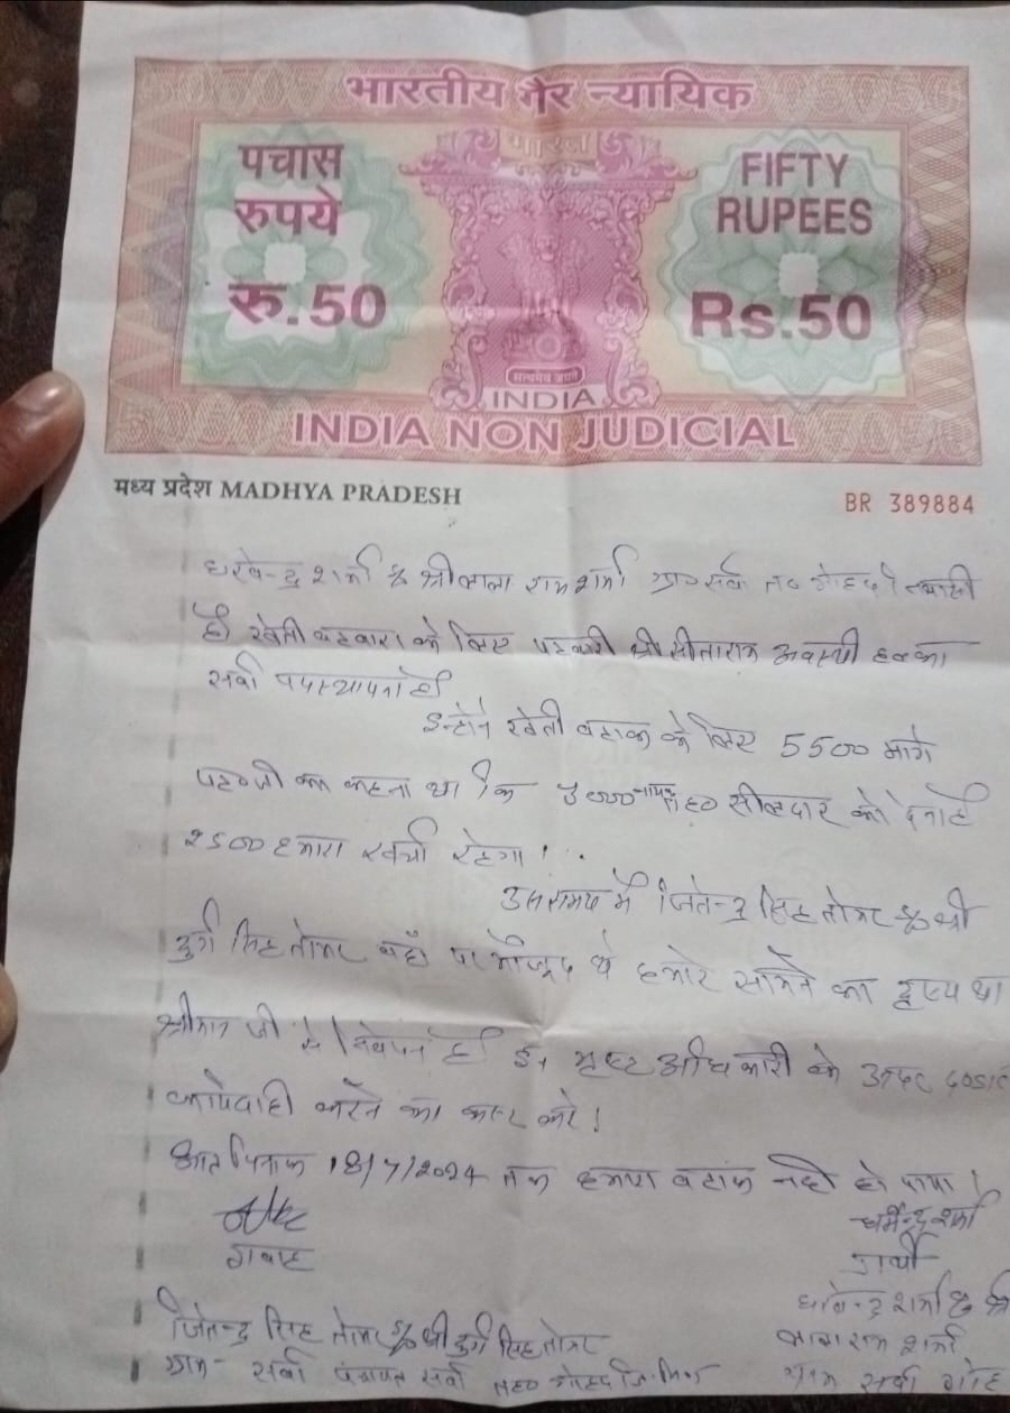 भारतीय गैर न्यायिक
भारत
पचास
रुपये
रु.50
FIFTY
RUPEES
Rs.50
सत्यमेव जयते
INDIA
INDIA NON JUDICIAL
मध्य प्रदेश MADHYA PRADESH
BR 389884
शर्मा S/o श्री लाला राम शर्मा ग्राम सर्वा
है खेती बटवारा के लिए पटवारी श्री सीताराम अवस्थी हल्का
सर्वा
इन्होंने खेती बटाक के लिए 5500 मागे
का कहना था कि 3000 नायब तह० सीलदार को देना है
2500 हमारा खर्चा रहेगा।
उस समय में जितेन्द्र सिंह तोमर S/o श्री
दुर्ग सिंह तोमर वहाँ पर मौजूद थे हमारे सामने का दृश्य था
श्रीमान जी से निवेदन है इन भ्रष्ट अधिकारी के
करने का कष्ट करे।
18/7/2024 तक हमारा बटाक नही हो पाया।
गवाह
धर्मेन्द्र शर्मा
प्रार्थी
शर्मा S/o श्री
राम शर्मा
जितेन्द्र सिंह तोमर S/o श्री दुर्ग सिंह तोमर
ग्राम - सर्वा पंचायत सर्वा तह० गोहद
ग्राम सर्वा